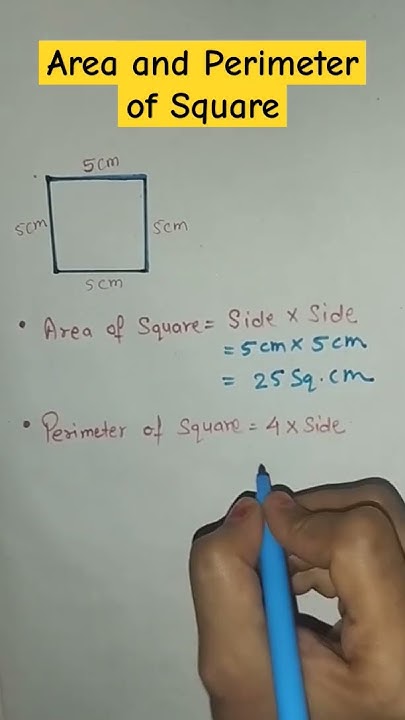 Area and Perimeter
of Square
5cm
5cm
5cm
5cm
• Area of Square = Side × Side
= 5cm × 5cm
= 25 Sq. cm
• Perimeter of Square = 4 × Side